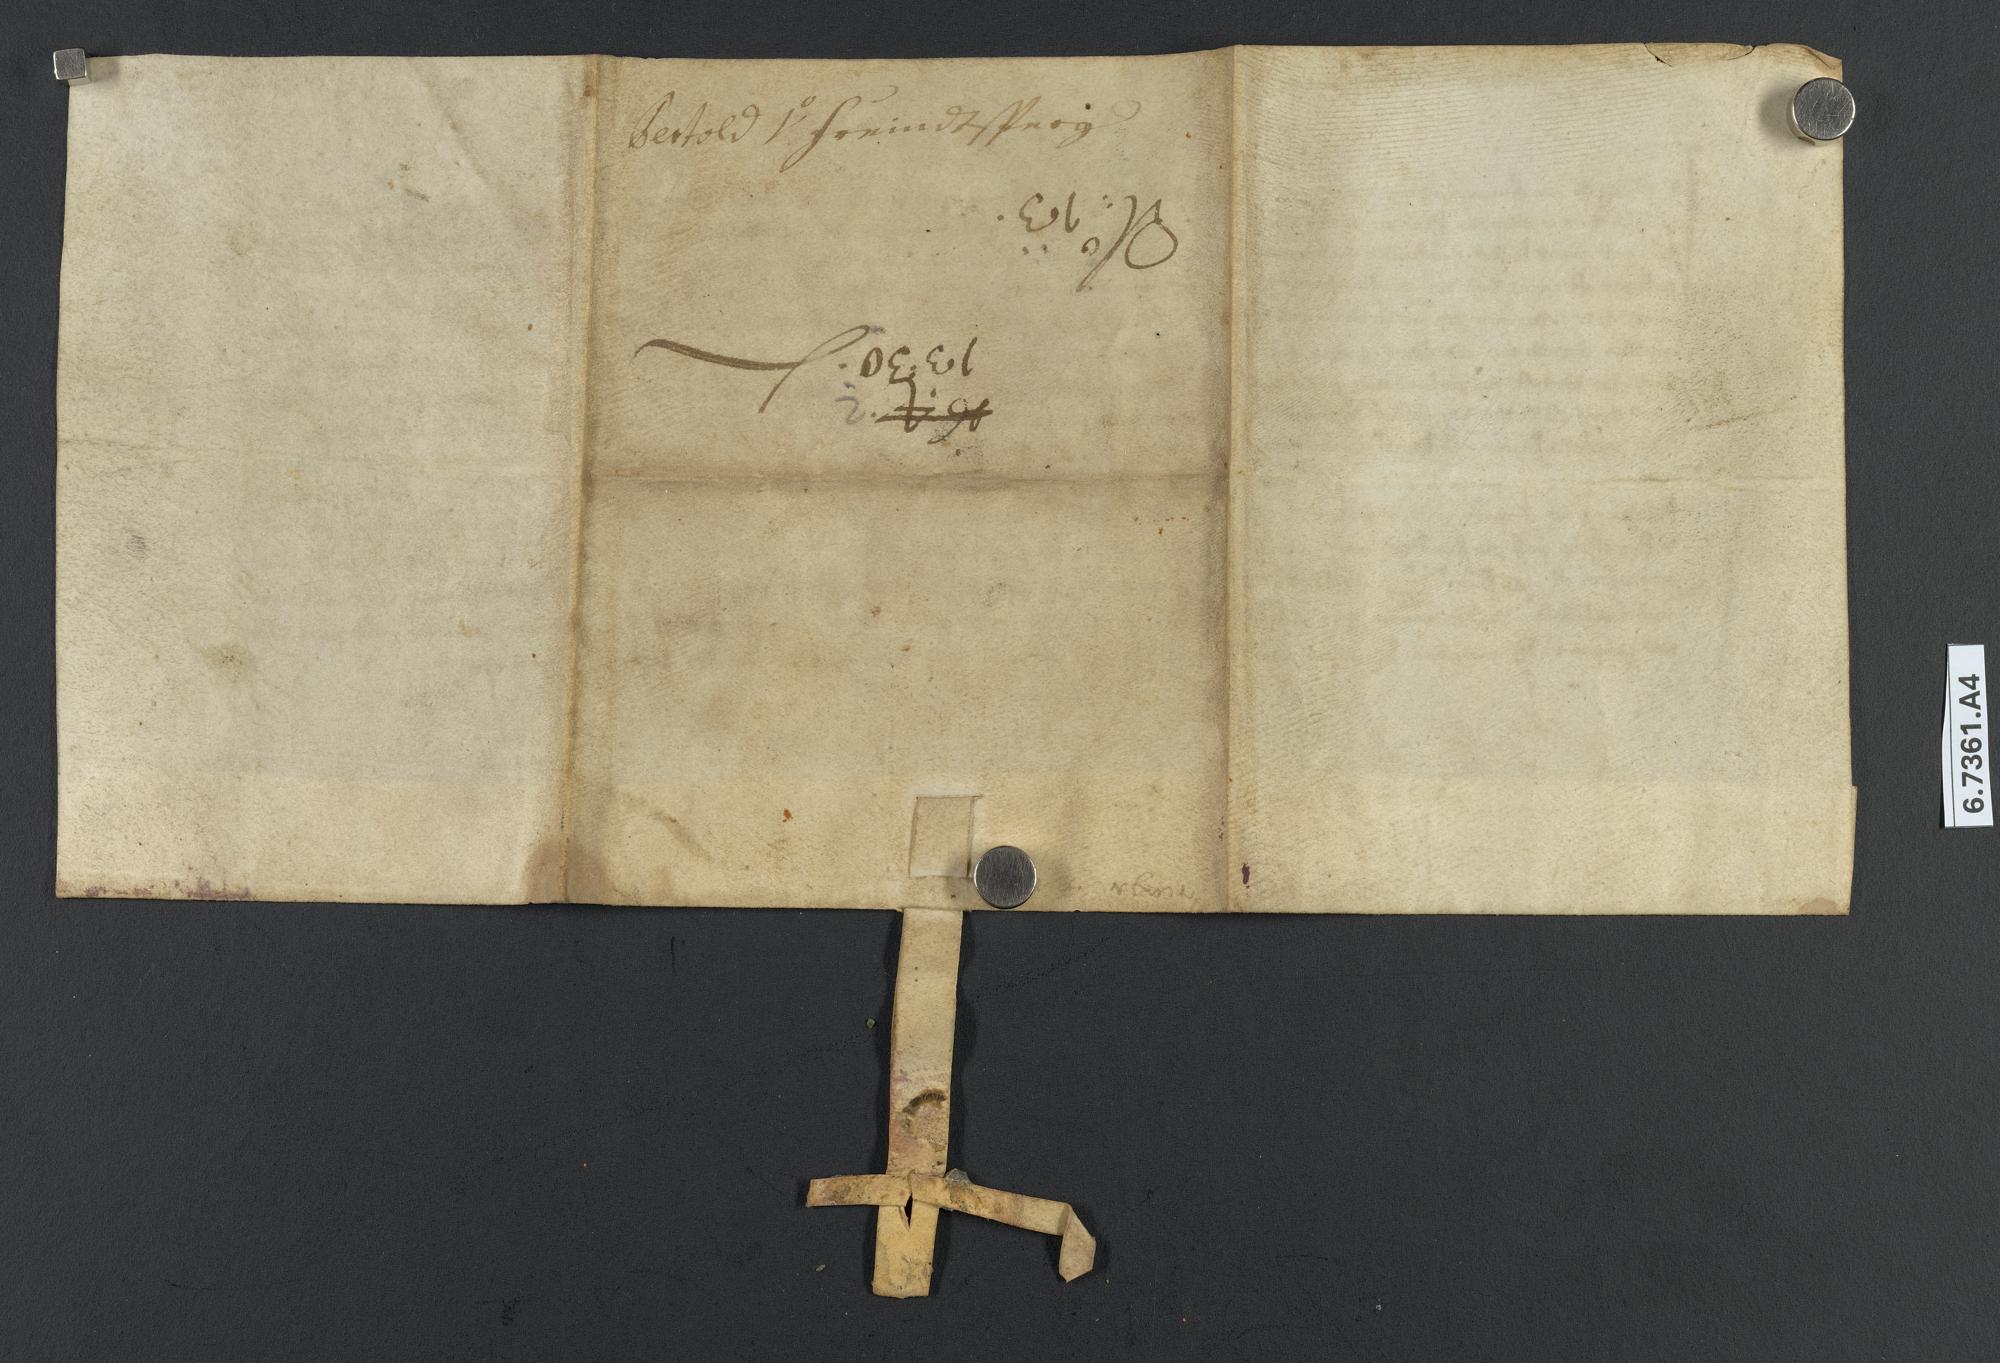 Bertold 1º Freindtsperg
No: 13.
1330.
6.7361.A4